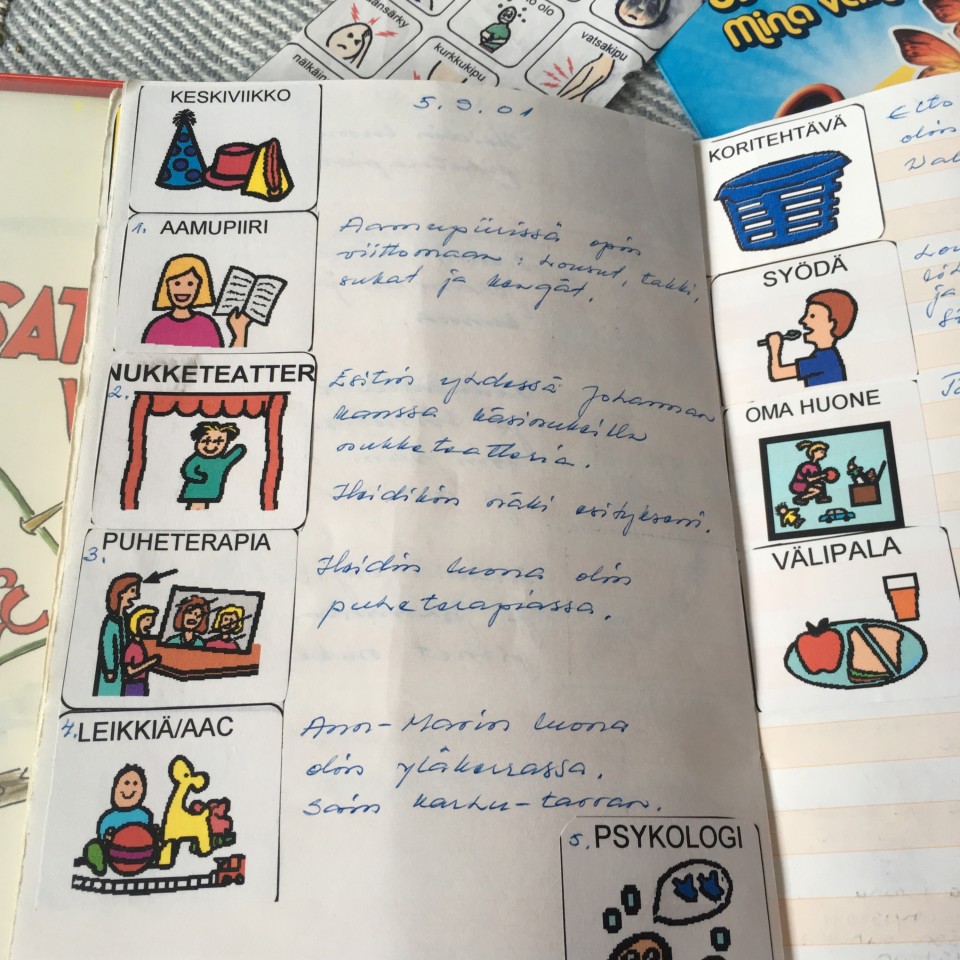 ansärky
olo
nälkäin
kurkkukipu
vatsakipu
KESKIVIIKKO
5.9.01
1. AAMUPIIRI
Aamupiirissä opin
viittomaan: housut, takki,
sukat ja kengät.
NUKKETEATTER
2.
Esitin yhdessä Johannan
kanssa käsinukeilla
nukketeatteria.
Heidikin näki esitykseni.
3. PUHETERAPIA
Heidin luona olin
puheterapiassa.
4. LEIKKIÄ/AAC
Ann-Marin luona
olin yläkerrassa.
Sain karhu-tarran.
5. PSYKOLOGI
KORITEHTÄVÄ
olin
SYÖDÄ
ja
OMA HUONE
VÄLIPALA